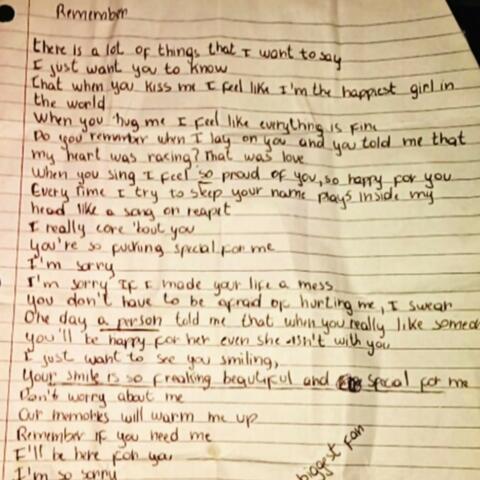 Remember
there is a lot of things that I want to say
I just want you to know
that when you kiss me I feel like I'm the happiest girl in
the world
When you hug me I feel like everything is fine
Do you remember when I lay on you and you told me that
my heart was racing? That was love
When you sing I feel so proud of you, so happy for you
Every time I try to sleep your name plays inside my
head like a song on reapet
I really care 'bout you
You're so fucking special for me
I'm sorry
I'm sorry If I made your life a mess
You don't have to be afraid of hurting me, I swear
One day a person told me that when you really like someon
you'll be happy for her even she isn't with you
I just want to see you smiling,
Your smile is so freaking beautiful and special for me
Don't worry about me
Our memories will warm me up
Remember if you need me
I'll be here for you
I'm so sorry
biggest fan